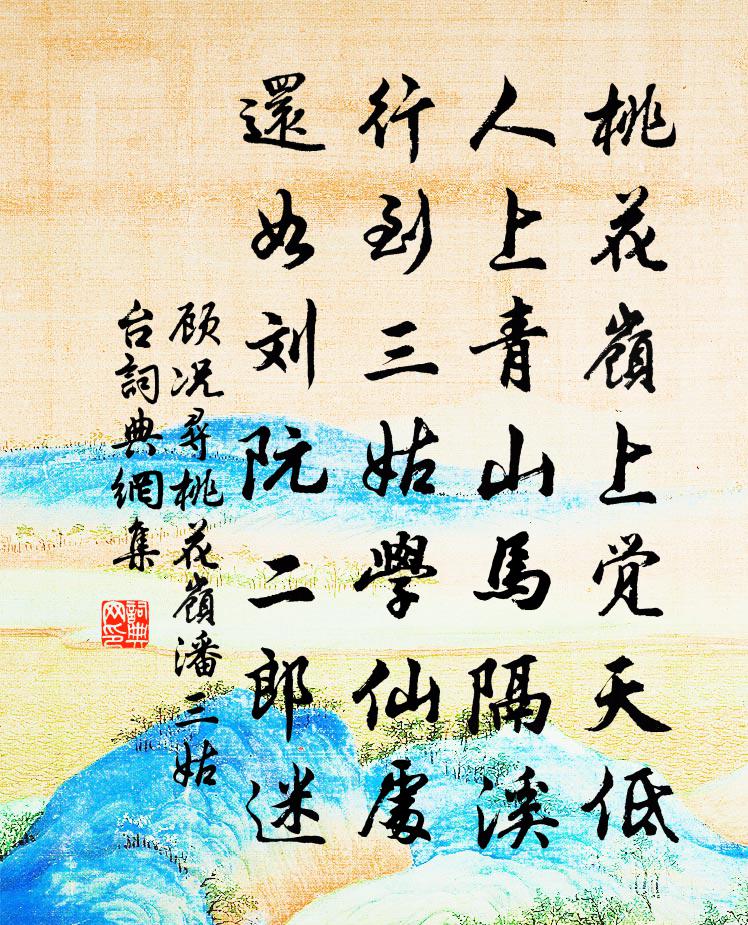 桃花嶺上觉天低
人上青山馬隔溪
行到三姑學仙處
還如刘阮二郎迷
顾况尋桃花嶺潘三姑
台詞典網集
詞典
网印